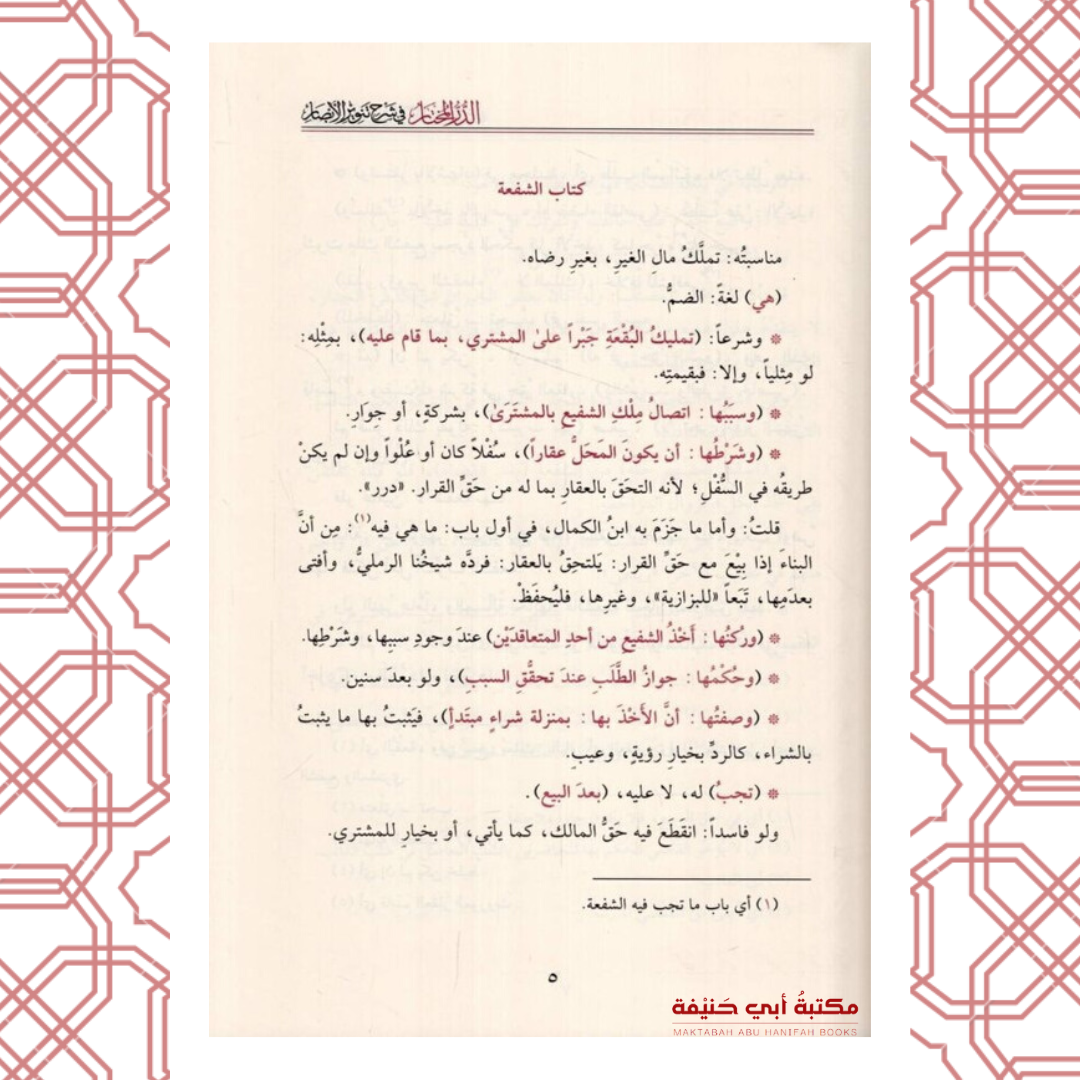 الدر المختار في شرح تنوير الأبصار
كتاب الشفعة
مناسبتُه: تملُّكُ مالِ الغيرِ، بغيرِ رضاه.
(هي) لغةً: الضمُّ.
* وشرعاً: (تمليكُ البُقْعَةِ جَبْراً علىٰ المشتري، بما قام عليه)، بمِثْلِه:
لو مِثلياً، وإلا: فبقيمتِه.
* (وسبَبُها: اتصالُ مِلْكِ الشفيعِ بالمشتَرَىٰ)، بشركةٍ، أو جوارٍ.
* (وشَرْطُها: أن يكونَ المَحَلُّ عقاراً)، سُفْلاً كان أو عُلْواً وإن لم يكنْ
طريقُه في السُّفْلِ؛ لأنه التحَقَ بالعقارِ بما له من حَقِّ القرار. «درر».
قلتُ: وأما ما جَزَمَ به ابنُ الكمال، في أول باب: ما هي فيه(١): مِن أنَّ
البناءَ إذا بِيْعَ مع حَقِّ القرار: يَلتحِقُ بالعقار: فردَّه شيخُنا الرمليُّ، وأفتى
بعدَمِها، تَبَعاً «للبزازية»، وغيرِها، فليُحفَظْ.
* (ورُكنُها: أَخْذُ الشفيعِ من أحدِ المتعاقدَيْن) عندَ وجودِ سببِها، وشَرْطِها.
* (وحُكْمُها: جوازُ الطَّلَبِ عندَ تحقُّقِ السببِ)، ولو بعدَ سنين.
* (وصفتُها: أنَّ الأَخْذَ بها: بمنزلة شراءٍ مبتَدأٍ)، فيَثبتُ بها ما يثبتُ
بالشراء، كالردِّ بخيارِ رؤيةٍ، وعيبٍ.
* (تجبُ) له، لا عليه، (بعدَ البيع).
ولو فاسداً: انقَطَعَ فيه حَقُّ المالك، كما يأتي، أو بخيارٍ للمشتري.
(١) أي باب ما تجب فيه الشفعة.
٥
مكتبةُ أبي حَنيْفة
MAKTABAH ABU HANIFAH BOOKS